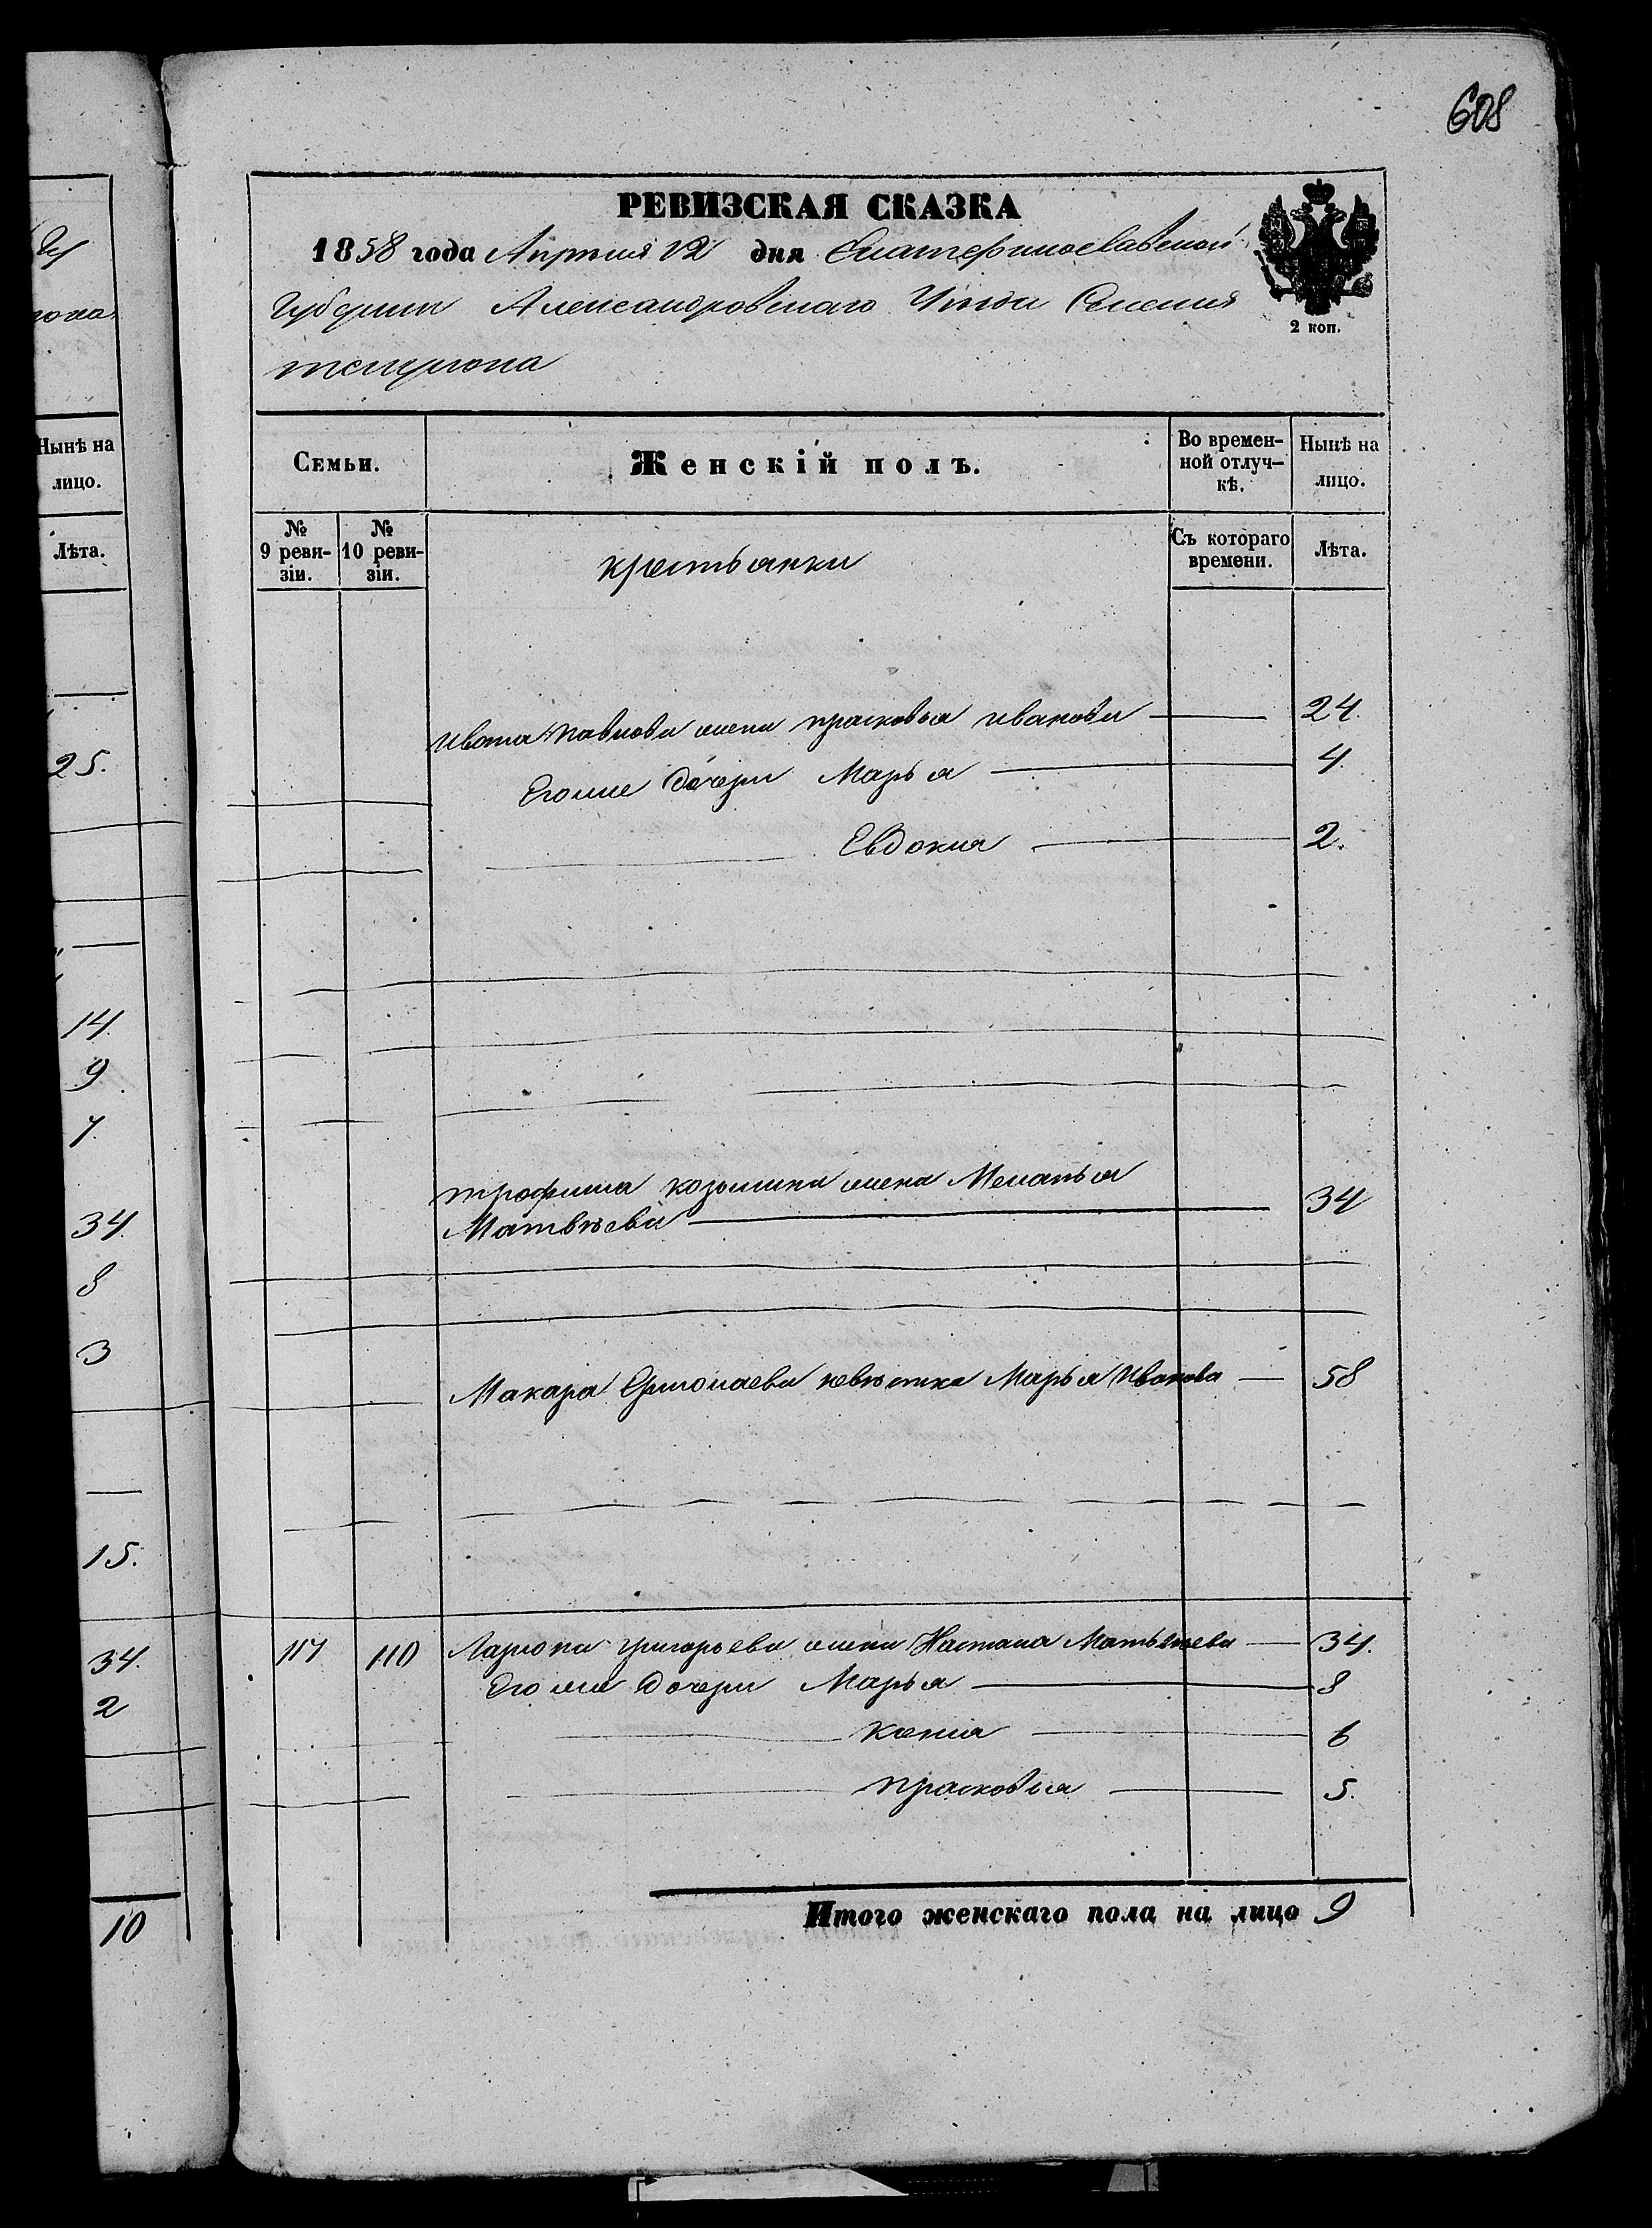 608
РЕВИЗСКАЯ СКАЗКА
1858 года Апрѣля 12 дня Екатеринославской
Губернии Александровскаго Уѣзда Селения
2 коп.
Нынѣ на лицо.
Лѣта.
25.
14.
9
7.
34.
8
3
15.
34.
2
10
Семьи.
Женскій полъ.
Во времен-
ной отлуч-
кѣ.
Нынѣ на
лицо.
№
9 реви-
зіи.
№
10 реви-
зіи.
крестьянки
Съ котораго
времени.
Лѣта.
Ивана Павлова жена прасковья иванова 24.
Его же дочери Марья 4.
Евдокия 2.
трофима козьмина жена Меланья
Матвѣева 34
Макара невѣстка Марья Иванова 58
117 110 Лариона григорьева жена Настасья Матвѣева 34.
Его же дочери Марья 8
6
прасковья 5.
Итого женскаго пола на лицо 9